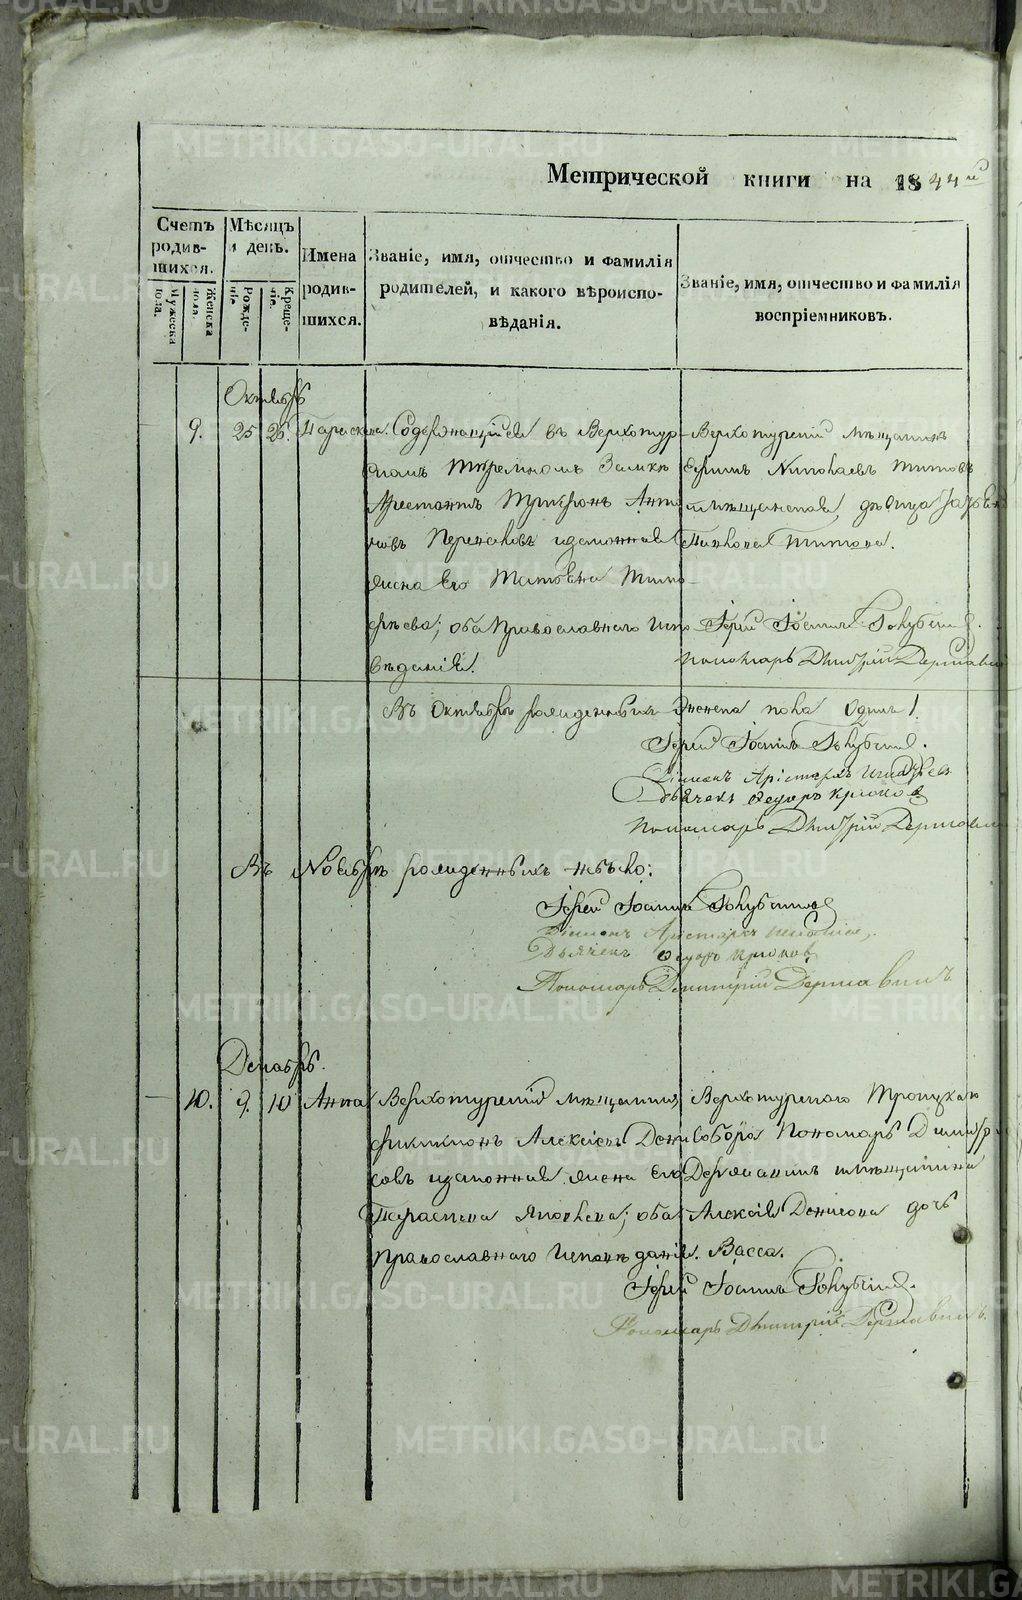 Метрической книги на 1844й
Счетъ родив-шихся.
Мѣсяцъ и день.
Имена родив-шихся.
Званіе, имя, отчество и фамилія родителей, и какого вѣроиспо-вѣданія.
Званіе, имя, отчество и фамилія воспріемниковъ.
Мужеска пола.
Женска пола.
Рожде-ніе.
Креще-ніе.
Октябрь
9. 25 26. Параскева. Содержащійся въ Верхотур-
скомъ Тюремномъ Замкѣ
Арестантъ
новъ законная
жена его Титовна Тимо-
фѣева; оба Православнаго Испо-
вѣданія.
Верхотурскій мѣщанинъ
Николаевъ Титовъ
и мѣщанская дѣвица
Титова.
Іерей Іоаннъ Голубинъ.
Пономарь Дмитрій Державинъ
Въ Октябрѣ рожденныхъ женска пола Одна 1.
Іерей Іоаннъ Голубинъ.
Діаконъ Аристархъ Игнатьев
Дьячекъ Федоръ Крюков
Пономарь Дмитрій Державинъ
Въ Ноябрѣ рожденныхъ небыло:
Іерей Іоаннъ Голубинъ
Діаконъ Аристархъ
Дьячекъ Федоръ Крюков
Пономарь Дмитрій Державинъ
Декабрь.
10. 9. 10 Анна Верхотурскій мѣщанинъ
Алексіевъ Дени-
совъ законная жена его
Параскева Яковлева; оба
Православнаго Исповѣданія.
Верхотурскаго Троицкаго
Собора Пономарь Димитрій
Державинъ и мѣщанина
Алексія Денисова дочь
Васса.
Іерей Іоаннъ Голубинъ.
Пономарь Дмитрій Державинъ.
METRIKI.GASO-URAL.RU